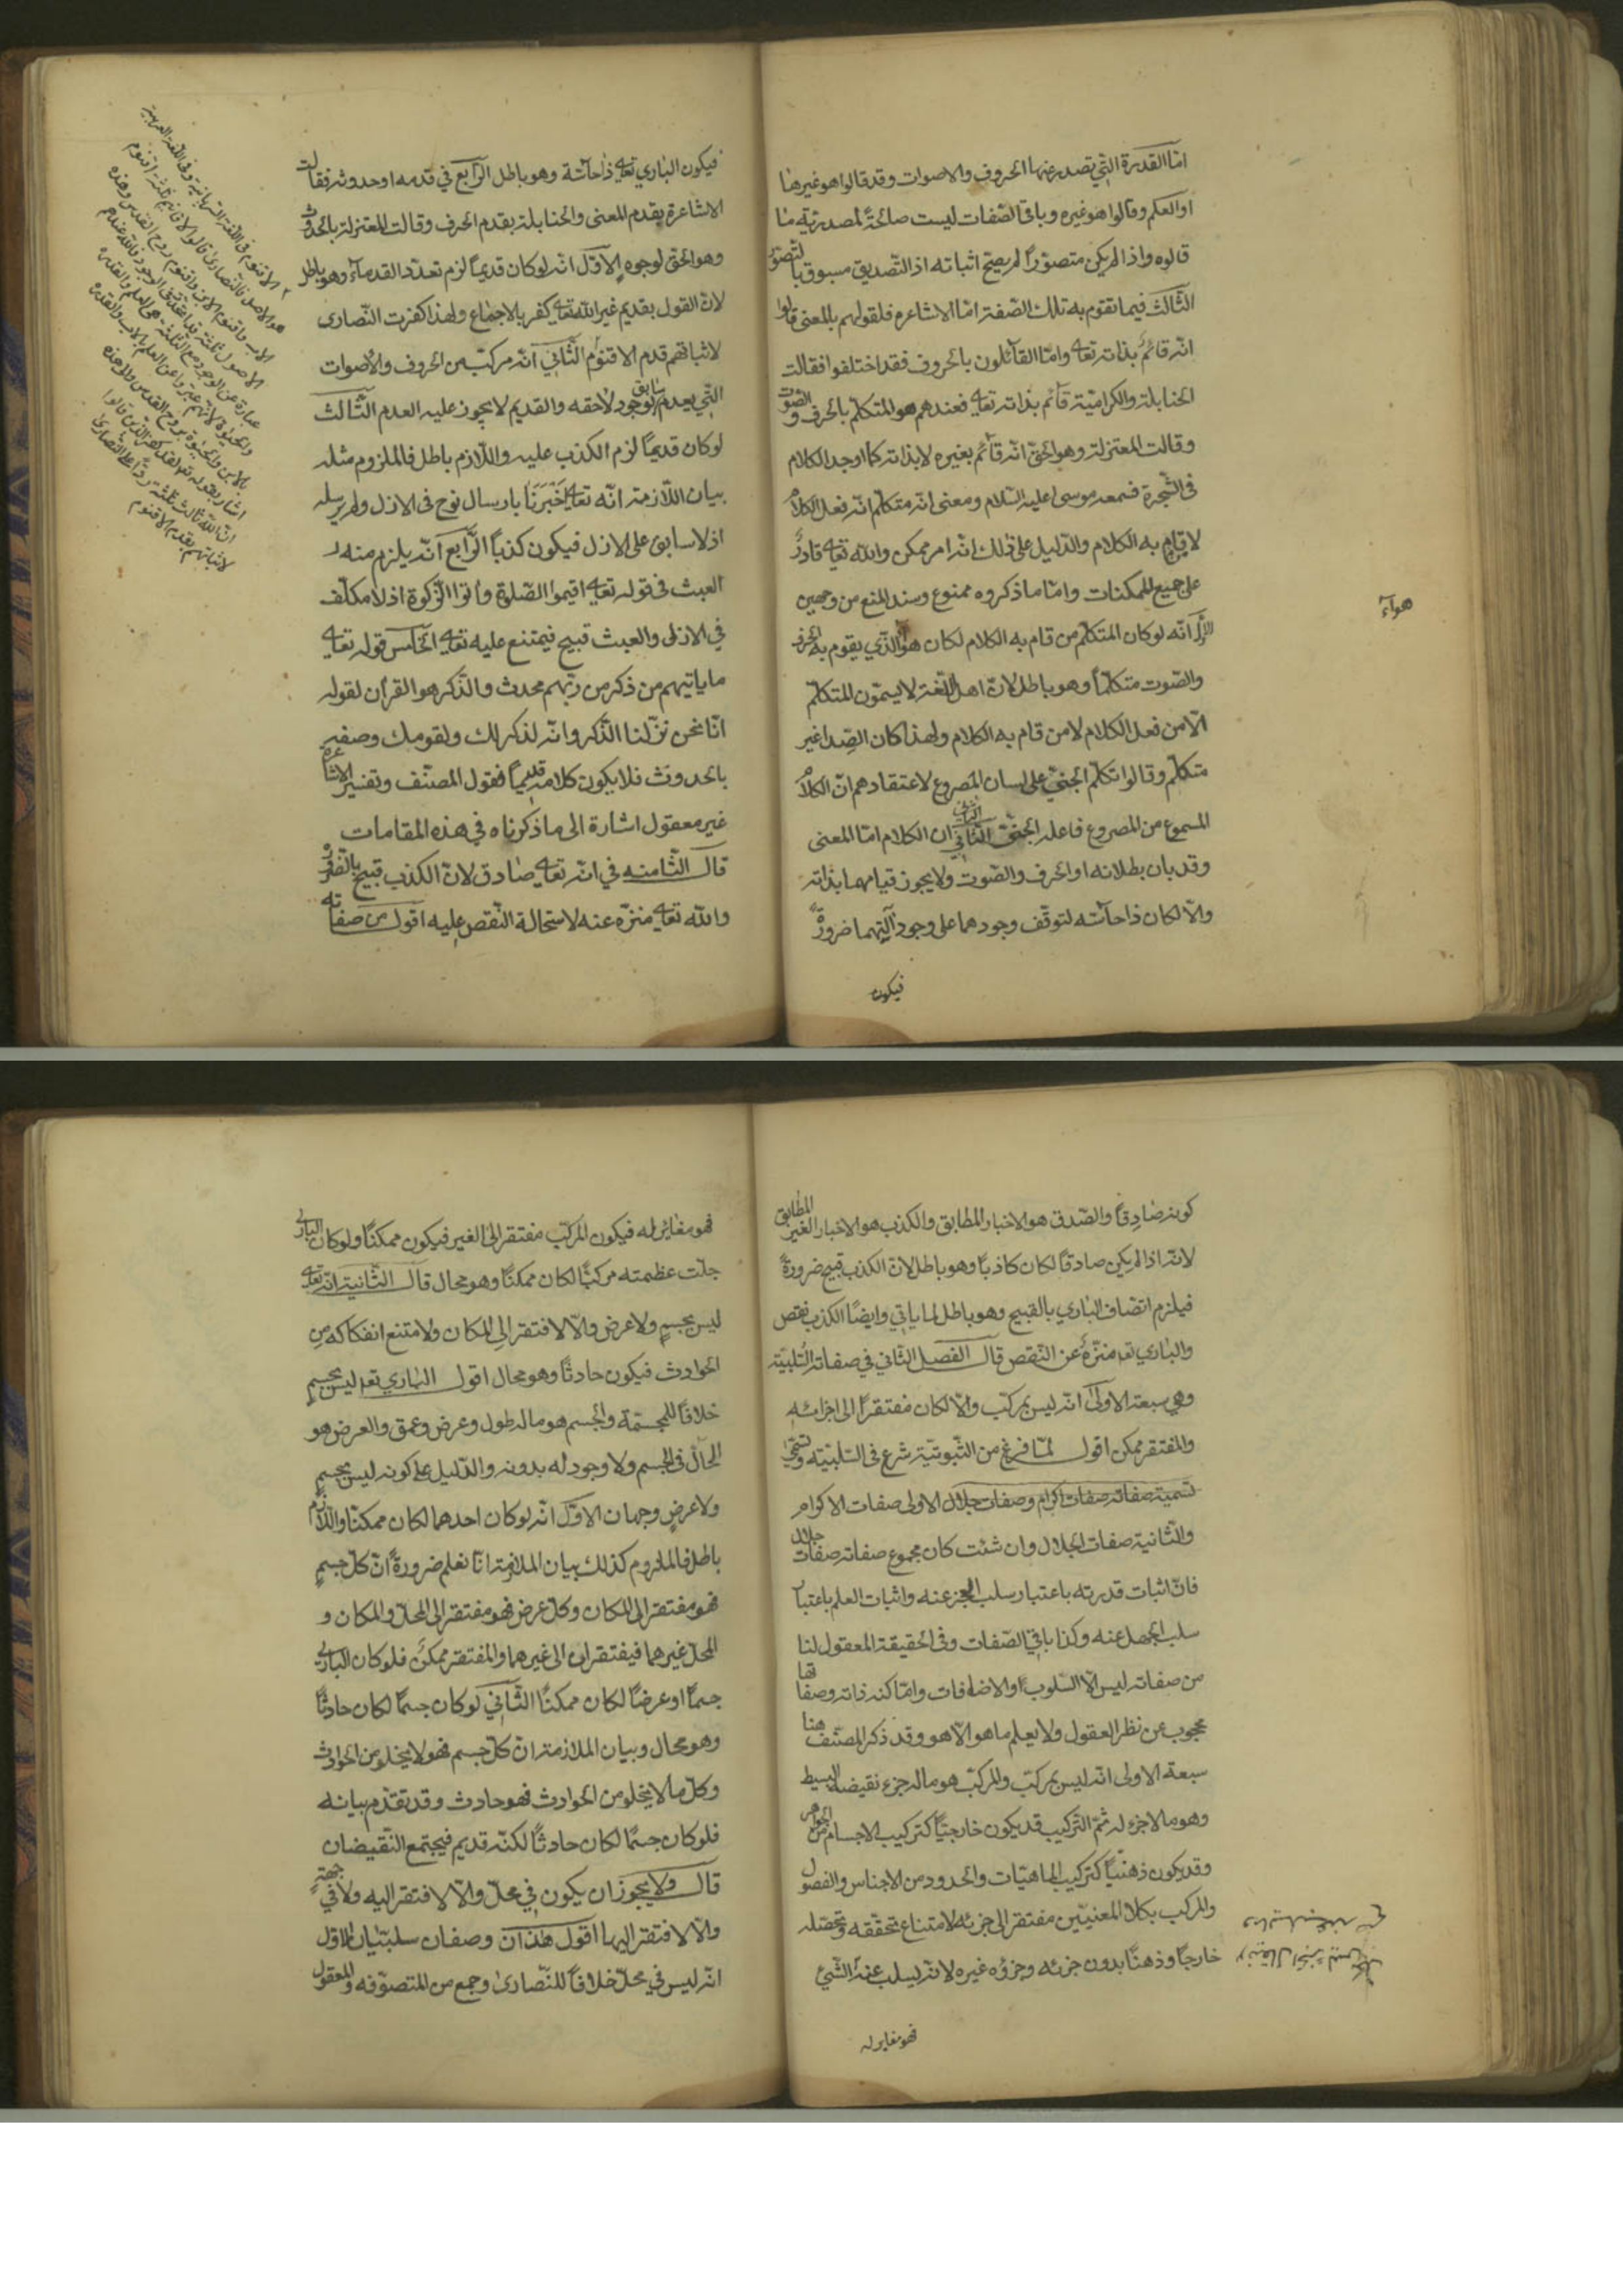 امّا القدرة التي تصدر عنها الحروف والاصوات وقد قالوا هو غيرها
او العلم وقالوا هو غيره وباقي الصّفات ليست صالحةً لمصدريّة ما
قالوه واذا لم يكن متصوّراً لم يصحّ اثباته اذ التّصديق مسبوق بالتّصوّر
الثّالث فيما تقوم به تلك الصّفة امّا الاشاعرة فلقولهم بالمعنى قالوا
انّه قائمٌ بذاته تعالى وامّا القائلون بالحروف فقد اختلفوا فقالت
الحنابلة والكراميّة قائم بذاته تعالى فعندهم هو المتكلّم بالحرف والصّوت
وقالت المعتزلة وهو الحقّ انّه قائم بغيره لا بذاته كما اوجد الكلام
في الشّجرة فسمعه موسى عليه السّلام ومعنى انّه متكلّم انّه فعل الكلام
لا قام به الكلام والدّليل على ذلك انّه امر ممكن والله تعالى قادرٌ
على جميع الممكنات وامّا ما ذكروه ممنوع وسند المنع من وجهين
الاوّل انّه لو كان المتكلّم من قام به الكلام لكان هو الّذي يقوم به الحرف
هواء
والصّوت متكلّماً وهو باطل لانّ اهل اللّغة لا يسمّون المتكلّم
الّا من فعل الكلام لا من قام به الكلام ولهذا كان الصّدا غير
متكلّم وقالوا تكلّم الجنيّ على لسان المصروع لاعتقادهم انّ الكلام
المسموع من المصروع فاعله الجنيّ الثّاني ان الكلام امّا المعنى
وقد بان بطلانه او الحرف والصّوت ولا يجوز قيامهما بذاته
والّا لكان ذا حاسّة لتوقّف وجودهما على وجود آلتيهما ضرورةً
فيكون
فيكون الباري تعالى ذا حاسّة وهو باطل الرّابع في قدمه او حدوثه فقالت
الاشاعرة بقدم المعنى والحنابلة بقدم الحرف وقالت المعتزلة بالحدوث
وهو الحقّ لوجوه الاوّل انّه لو كان قديماً لزم تعدّد القدماء وهو باطل
لانّ القول بقديم غير الله تعالى كفر بالاجماع ولهذا كفرت النّصارى
لاثباتهم قدم الاقنوم الثّاني انّه مركّب من الحروف والاصوات
الّتي يعدم سابق لوجود لاحقه والقديم لا يجوز عليه العدم الثّالث
لو كان قديماً لزم الكذب عليه واللّازم باطل فالملزوم مثله
بيان الملازمة انّه تعالى اخْبَرَنَا بارسال نوح في الازل ولم يرسله
اذ لا سابق على الازل فيكون كذباً الرّابع انّه يلزم منه
العبث في قوله تعالى اقيموا الصّلوة واتوا الزّكوة اذ لا مكلّف
في الازل والعبث قبيح فيمتنع عليه تعالى الخامس قوله تعالى
ما ياتيهم من ذكر من ربّهم محدث والذّكر هو القرآن لقوله
انّا نحن نزّلنا الذّكر وانّه لذكر لك ولقومك وصفه
بالحدوث فلا يكون كلامه قديماً فقول المصنّف وتفسير الاشاعرة
غير معقول اشارة الى ما ذكرناه في هذه المقامات
قال الثّامنه في انّه تعالى صادق لانّ الكذب قبيح بالضّرورة
والله تعالى منزّه عنه لاستحالة النّقص عليه اقول من صفاته
الاقنوم في اللّغة السّريانيّة وفي اللّغة العربيّة
هو الاصل فالنّصارى قالوا الاقانيم ثلثة اقنوم
الاب واقنوم الابن واقنوم روح القدس وهذه
كونه صادقاً والصّدق هو الاخبار المطابق والكذب هو الاخبار الغير المطابق
لانّه اذا لم يكن صادقاً لكان كاذباً وهو باطل لانّ الكذب قبيح ضرورةً
فيلزم اتّصاف الباري بالقبيح وهو باطل لما ياتي وايضاً الكذب نقص
والباري تعالى منزّهٌ عن النّقص قال الفصل الثّاني في صفاته السّلبيّة
وهي سبعة الاولى انّه ليس بمركّب والّا لكان مفتقراً الى اجزائه
والمفتقر ممكن اقول لمّا فرغ من الثّبوتيّة شرع في السّلبيّة
تسمية صفاته صفات اكرام وصفات جلال الاولى صفات الاكرام
والثّانية صفات الجلال وان شئت كان مجموع صفاته صفات جلال
فانّ اثبات قدرته باعتبار سلب العجز عنه واثبات العلم باعتبار
سلب الجهل عنه وكذا باقي الصّفات وفي الحقيقة المعقول لنا
من صفاته ليس الّا السّلوب والاضافات وامّا كنه ذاته وصفاته
محجوب عن نظر العقول ولا يعلم ما هو الّا هو وقد ذكر المصنّف هنا
سبعة الاولى انّه ليس بمركّب والمركّب هو ما له جزء نقيضه البسيط
وهو ما لا جزء له ثمّ التّركيب قد يكون خارجيّاً كتركيب الاجسام من الجواهر
وقد يكون ذهنيّاً كتركيب الماهيّات والحدود من الاجناس والفصول
والمركب بكلا المعنيين مفتقر الى جزئه لامتناع تحقّقه وتحصّله
خارجاً وذهناً بدون جزئه وجزؤه غيره لانّه يسلب عنه الشّيء
فهو مغاير له
فهو مغاير له فيكون المركّب مفتقر الى الغير فيكون ممكناً ولو كان الباري
جلّت عظمته مركباً لكان ممكناً وهو محال قال الثّانية انّه تعالى
ليس بجسمٍ ولا عرض والّا لافتقر الى المكان ولامتنع انفكاكه من
الحوادث فيكون حادثاً وهو محال اقول الباري تعالى ليس بجسمٍ
خلافاً للمجسّمة والجسم هو ما له طول وعرض وعمق والعرض هو
الحالّ في الجسم ولا وجود له بدونه والدّليل على كونه ليس بجسمٍ
ولا عرضٍ وجهان الاوّل انّه لو كان احدهما لكان ممكناً واللّازم
باطل فالملزوم كذلك بيان الملازمة انّا نعلم ضرورةً انّ كلّ جسمٍ
فهو مفتقر الى المكان وكلّ عرض فهو مفتقر الى المحلّ والمكان و
المحلّ غيرهما فيفتقران الى غيرهما والمفتقر ممكنٌ فلو كان الباري
جسماً او عرضاً لكان ممكناً الثّاني لو كان جسماً لكان حادثاً
وهو محال وبيان الملازمة انّ كلّ جسم فهو لا يخلو من الحوادث
وكلّ ما لا يخلو من الحوادث فهو حادث وقد تقدّم بيانه
فلو كان جسماً لكان حادثاً لكنّه قديم فيجتمع النّقيضان
قال ولا يجوز ان يكون في محلّ والّا لافتقر اليه ولا في جهةٍ
والّا لافتقر اليها اقول هذان وصفان سلبيّان الاوّل
انّه ليس في محلّ خلافاً للنّصارى وجمع من المتصوّفه والمعقول